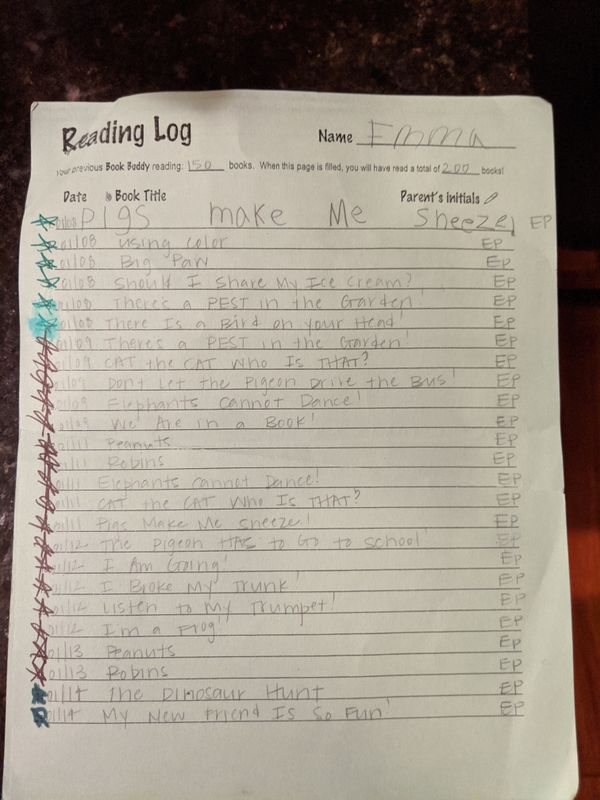 Reading Log Name Emma
Your previous Book Buddy reading: 150 books. When this page is filled, you will have read a total of 200 books!
Date Book Title Parent's Initials
01/08 Pigs make Me Sneeze! EP
01/08 Using color EP
01/08 Big Paw EP
01/08 Should I Share My Ice Cream? EP
01/08 There's a PEST in the Garden! EP
01/08 There Is a Bird on your Head! EP
01/09 There's a PEST in the Garden! EP
01/09 CAT the CAT Who Is THAT? EP
01/09 Don't Let the Pigeon Drive the Bus! EP
01/09 Elephants Cannot Dance! EP
01/09 We Are in a Book! EP
01/11 Peanuts EP
01/11 Robins EP
01/11 Elephants Cannot Dance! EP
01/11 CAT the CAT Who Is THAT? EP
01/11 Pigs Make Me Sneeze! EP
01/12 The Pigeon HAS to Go to School! EP
01/12 I Am Going! EP
01/12 I Broke My Trunk! EP
01/12 Listen to My Trumpet! EP
01/12 I'm a Frog! EP
01/13 Peanuts EP
01/13 Robins EP
01/14 The Dinosaur Hunt EP
01/14 My New Friend Is So Fun! EP